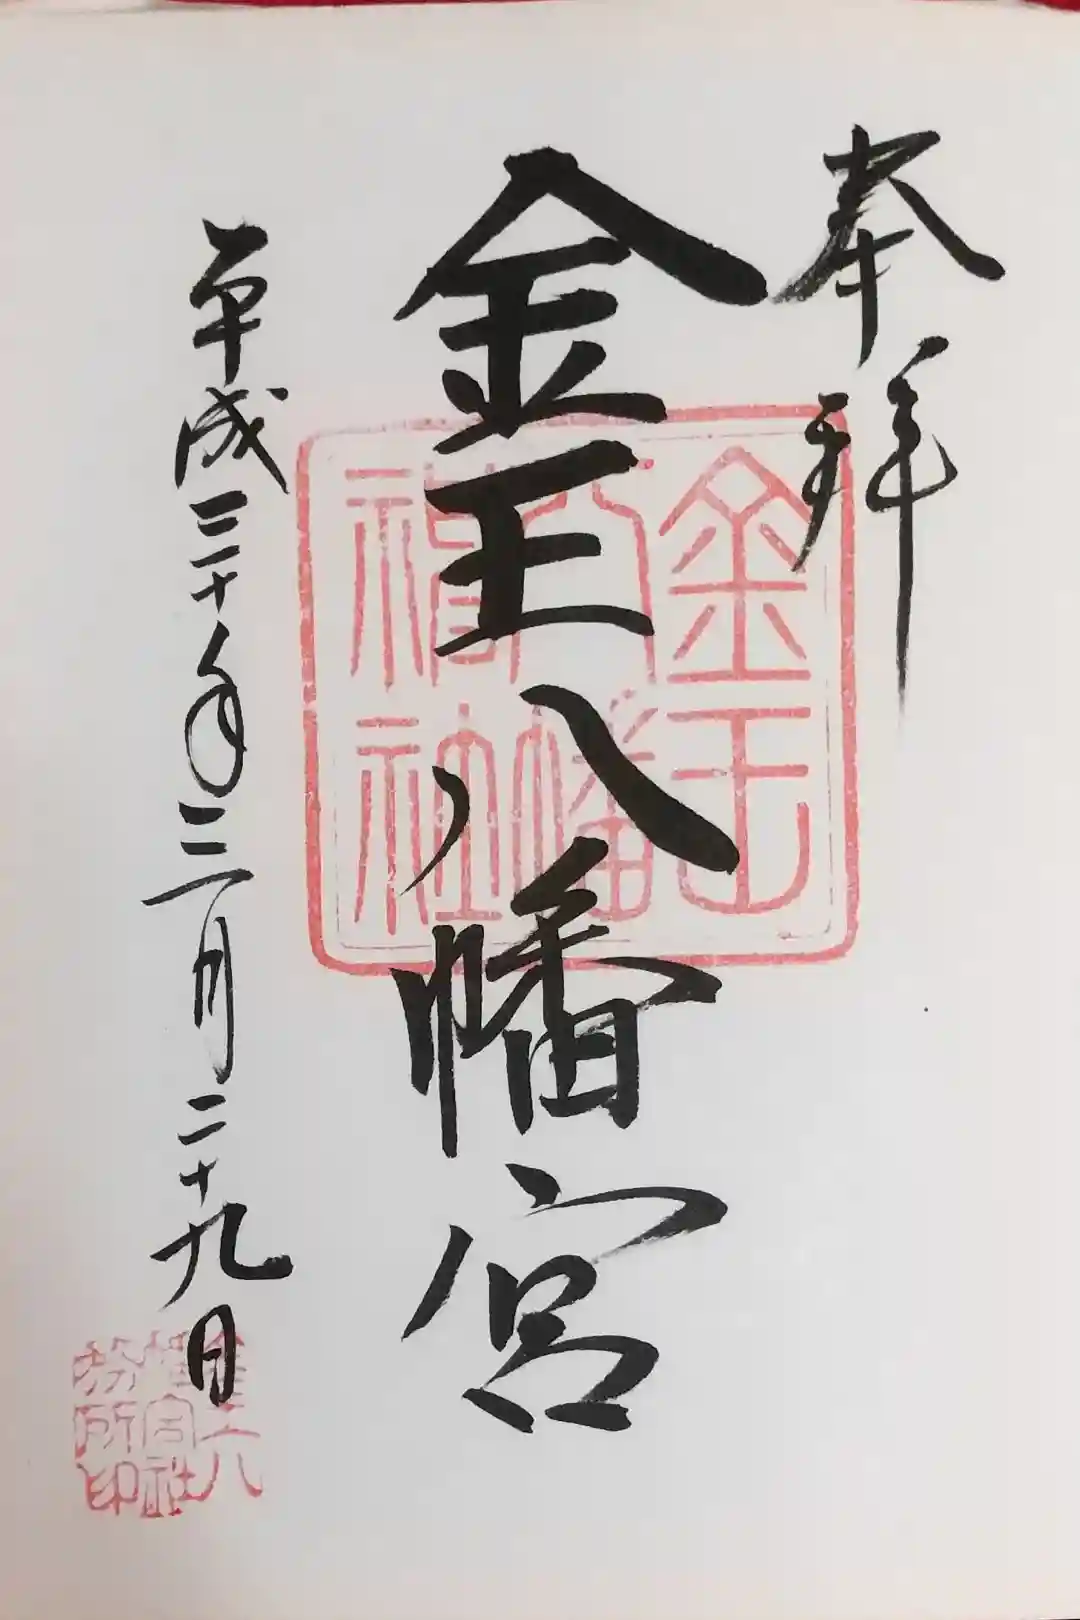 奉拝
金王八幡宮
金王
八幡
神社
平成三十年三月二十九日
金王八
幡宮社
務所印